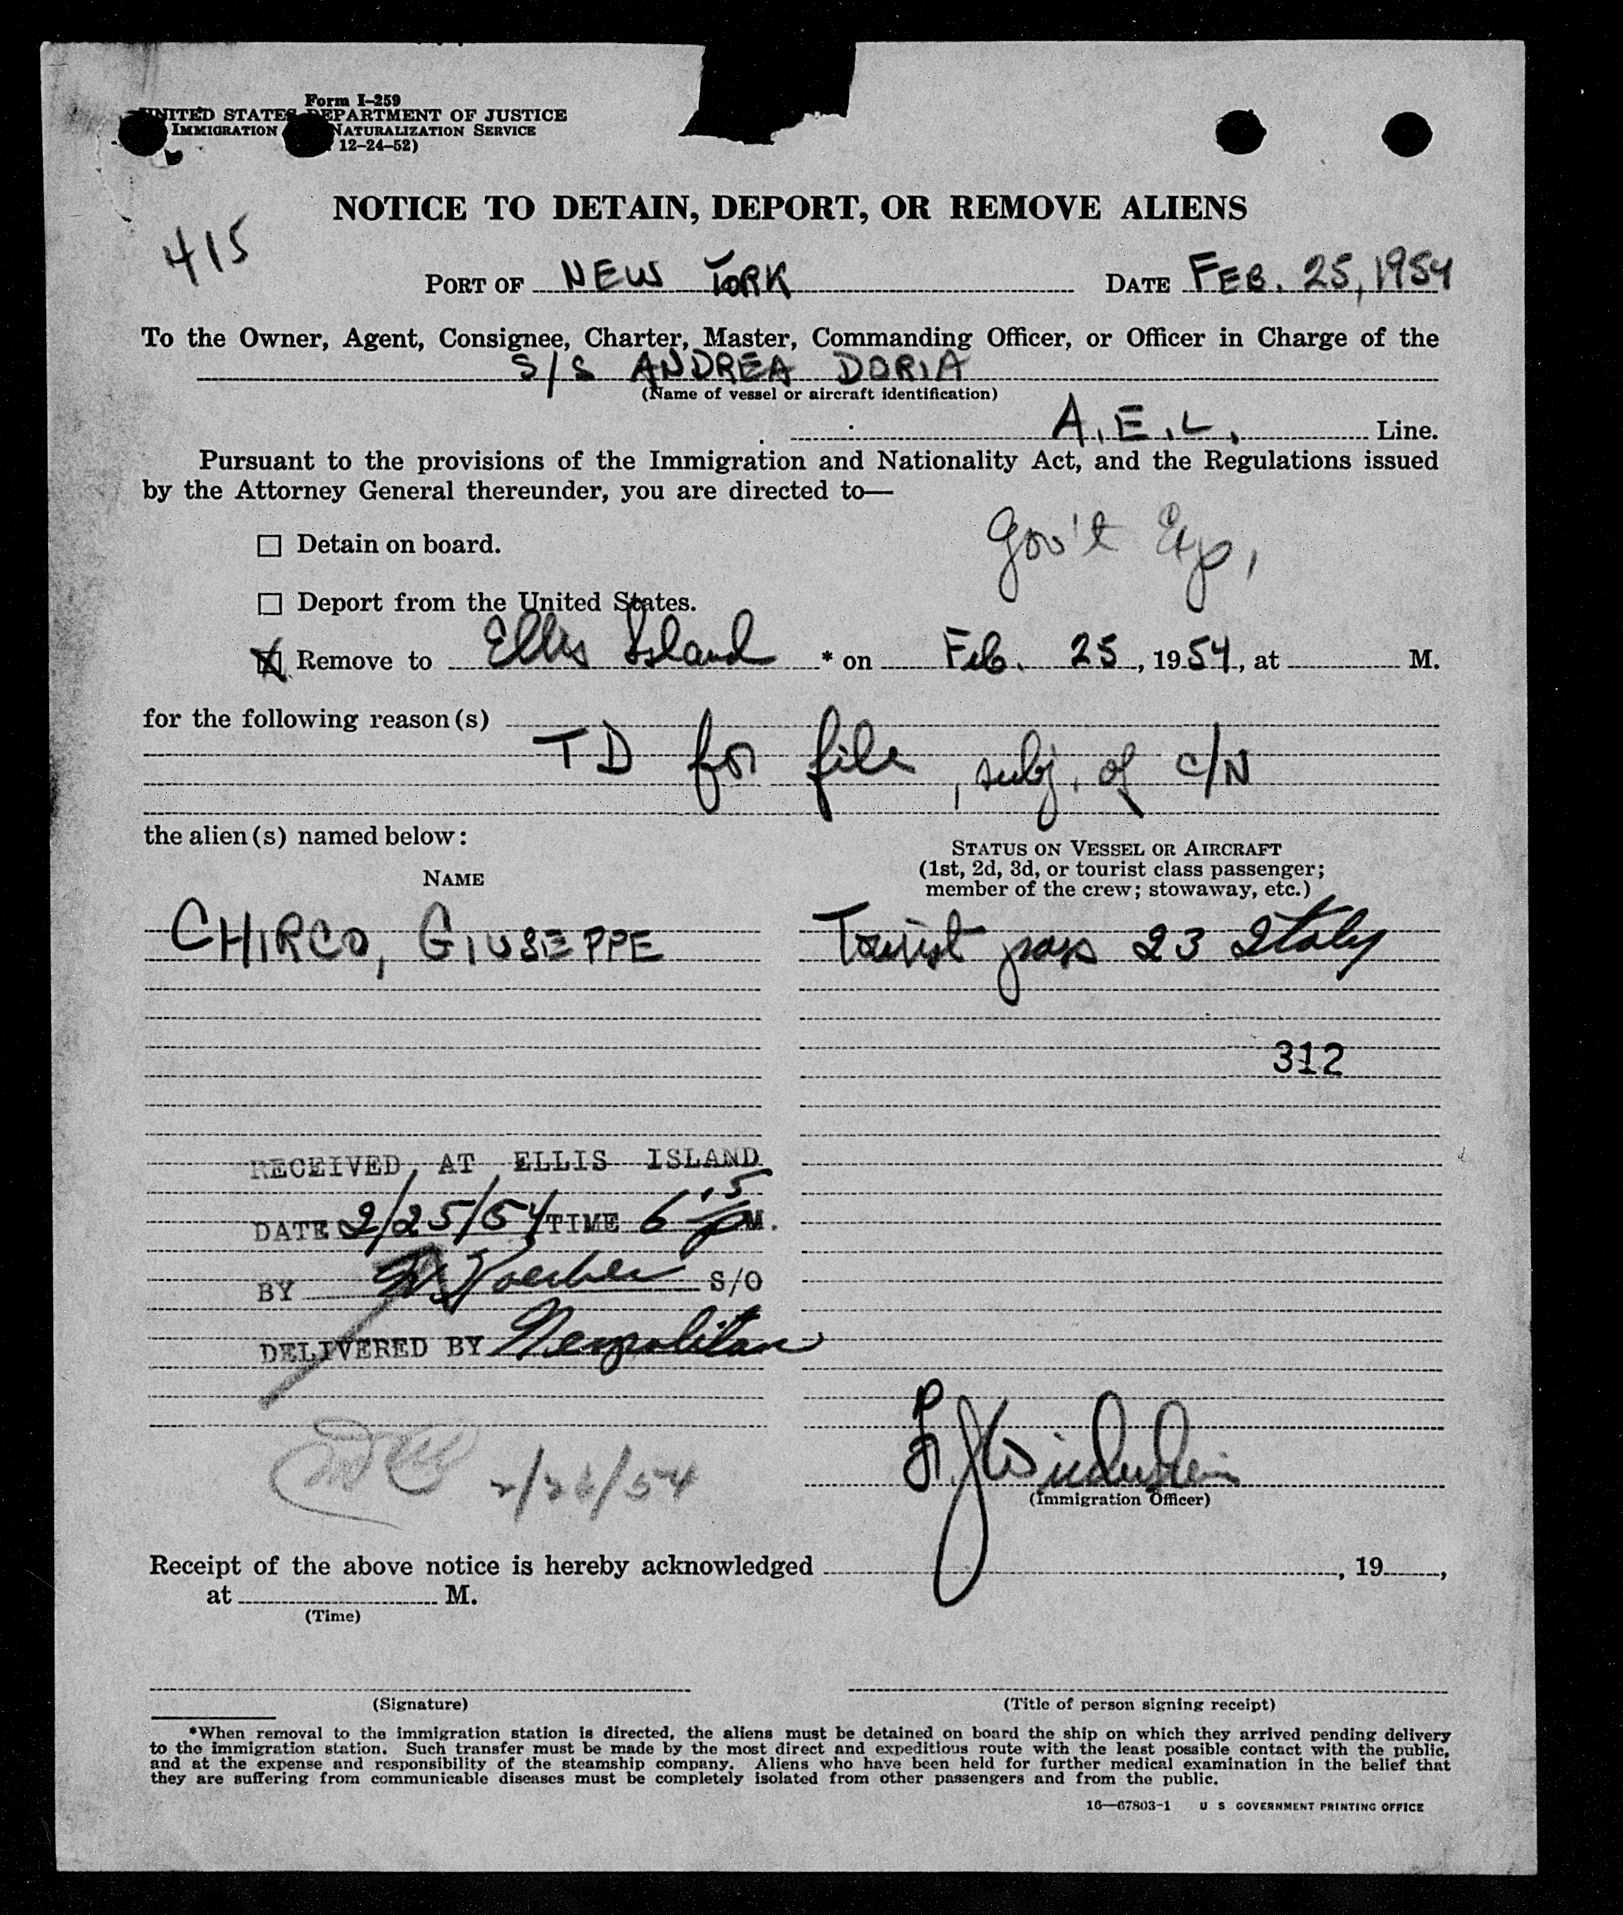 Form I-259
UNITED STATES DEPARTMENT OF JUSTICE
IMMIGRATION NATURALIZATION SERVICE
12-24-52)
NOTICE TO DETAIN, DEPORT, OR REMOVE ALIENS
415
PORT OF NEW YORK DATE FEB. 25, 1954
To the Owner, Agent, Consignee, Charter, Master, Commanding Officer, or Officer in Charge of the
S/S ANDREA DORIA
(Name of vessel or aircraft identification)
A.E.L. Line.
Pursuant to the provisions of the Immigration and Nationality Act, and the Regulations issued
by the Attorney General thereunder, you are directed to—
Gov't Exp,
Detain on board.
Deport from the United States.
X Remove to Ellis Island * on Feb. 25, 1954, at M.
for the following reason(s)
TD for file, subj. of C/N
the alien(s) named below:
STATUS ON VESSEL OR AIRCRAFT
(1st, 2d, 3d, or tourist class passenger;
member of the crew; stowaway, etc.)
NAME
CHIRCO, GIUSEPPE Tourist pass 23 Italy
312
RECEIVED AT ELLIS ISLAND
DATE 2/25/54 TIME 6 15 PM.
BY S/O
DELIVERED BY Neopolitan
2/26/54
(Immigration Officer)
Receipt of the above notice is hereby acknowledged , 19 ,
at M.
(Time)
(Signature) (Title of person signing receipt)
*When removal to the immigration station is directed, the aliens must be detained on board the ship on which they arrived pending delivery
to the immigration station. Such transfer must be made by the most direct and expeditious route with the least possible contact with the public,
and at the expense and responsibility of the steamship company. Aliens who have been held for further medical examination in the belief that
they are suffering from communicable diseases must be completely isolated from other passengers and from the public.
16—67803-1 U S GOVERNMENT PRINTING OFFICE